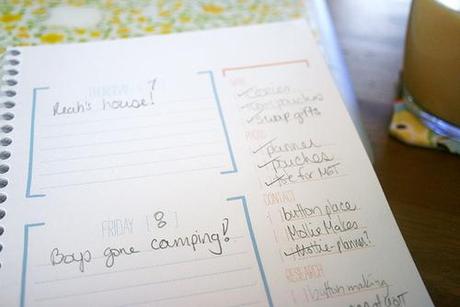 THURSDAY [ 7
Leah's house!
FRIDAY [ 8 ]
Boys gone camping!
swap gifts
PHOTO
planner
pouches
for MGT
CONTACT
button place
Mollie Makes
Mollie-planner?
RESEARCH
button making